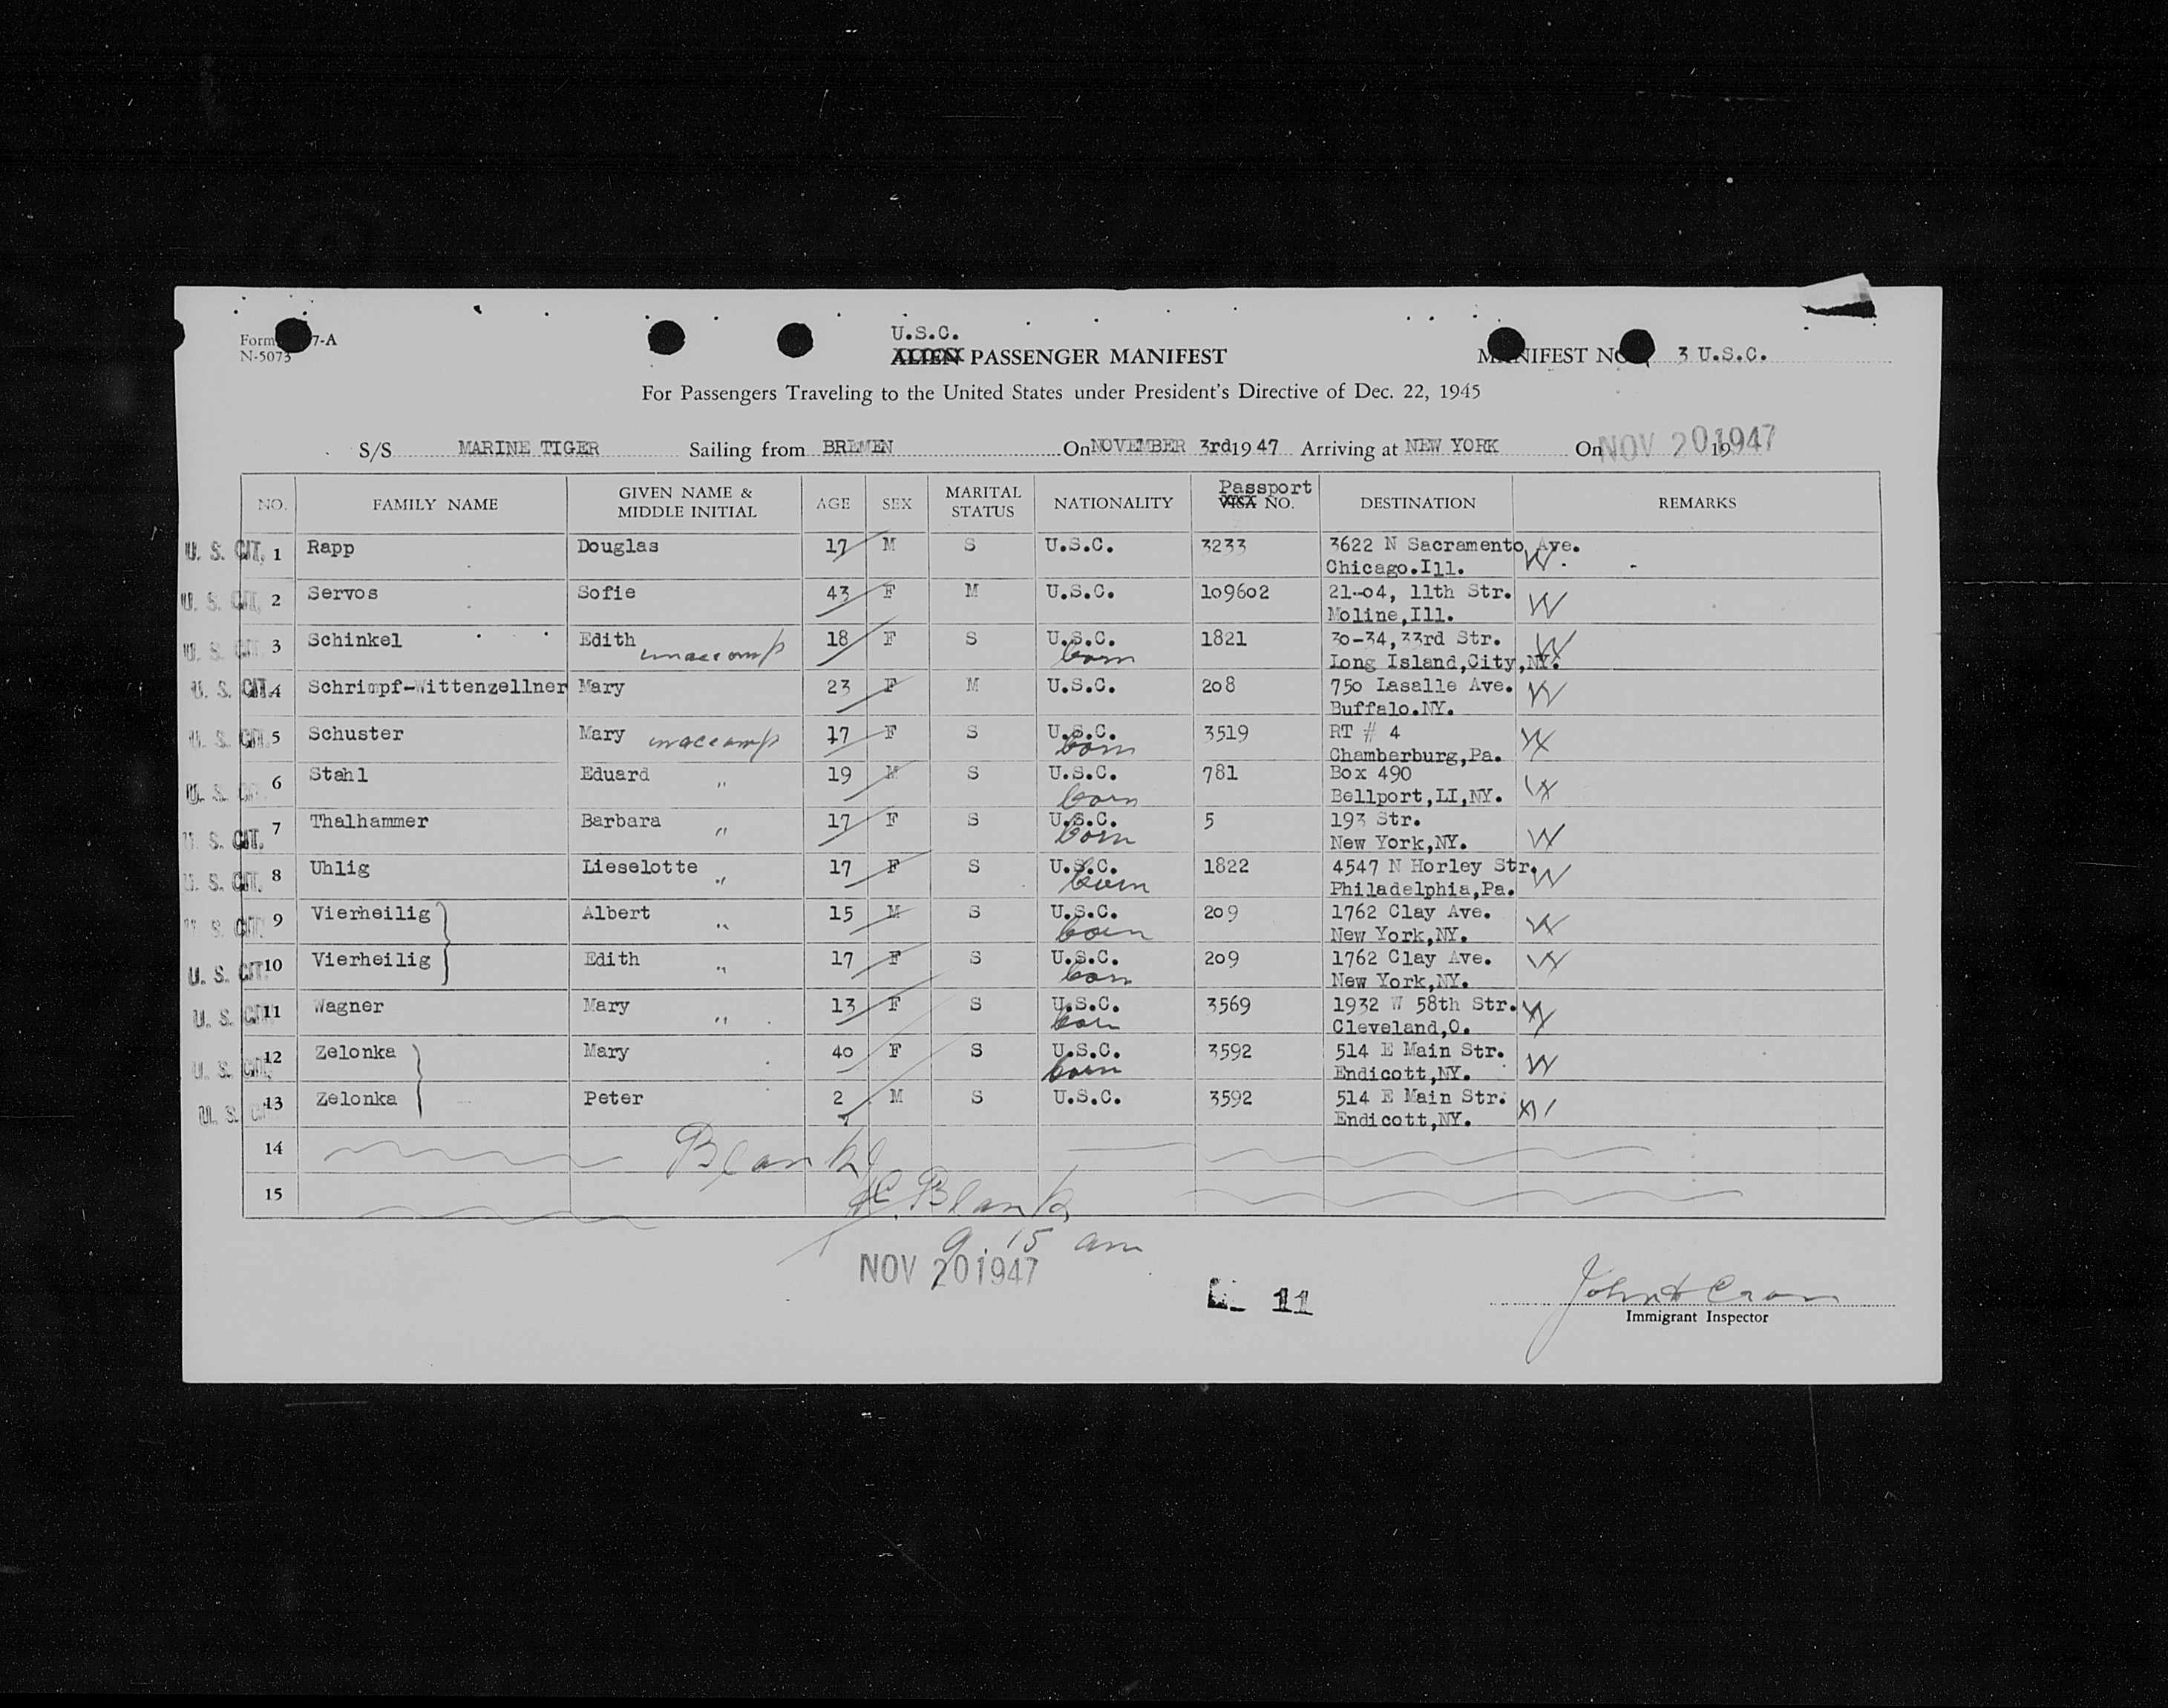 U.S.C.
Form 7-A
N-5073
ALIEN PASSENGER MANIFEST
MANIFEST NO. 3 U.S.C.
For Passengers Traveling to the United States under President's Directive of Dec. 22, 1945
S/S MARINE TIGER Sailing from BREMEN On NOVEMBER 3rd 1947 Arriving at NEW YORK On NOV 20 1947 19
NO. FAMILY NAME GIVEN NAME & MIDDLE INITIAL AGE SEX MARITAL STATUS NATIONALITY Passport VISA NO. DESTINATION REMARKS
U. S. CIT. 1 Rapp Douglas 17 M S U.S.C. 3233 3622 N Sacramento Ave.
Chicago.Ill.
U. S. CIT. 2 Servos Sofie 43 F M U.S.C. 109602 21-04, 11th Str.
Moline,Ill.
U. S. CIT. 3 Schinkel Edith unaccomp 18 F S U.S.C. born 1821 30-34,33rd Str.
Long Island,City,NY.
U. S. CIT. 4 Schrimpf-Wittenzellner Mary 23 F M U.S.C. 208 750 Lasalle Ave.
Buffalo.NY.
U. S. CIT. 5 Schuster Mary unaccomp 17 F S U.S.C. born 3519 RT # 4
Chamberburg,Pa.
U. S. CIT. 6 Stahl Eduard " 19 M S U.S.C. born 781 Box 490
Bellport,LI,NY.
U. S. CIT. 7 Thalhammer Barbara " 17 F S U.S.C. born 5 193 Str.
New York,NY.
U. S. CIT. 8 Uhlig Lieselotte " 17 F S U.S.C. born 1822 4547 N Horley Str.
Philadelphia,Pa.
U. S. CIT. 9 Vierheilig Albert " 15 M S U.S.C. born 209 1762 Clay Ave.
New York,NY.
U. S. CIT. 10 Vierheilig Edith " 17 F S U.S.C. born 209 1762 Clay Ave.
New York,NY.
U. S. CIT. 11 Wagner Mary " 13 F S U.S.C. born 3569 1932 W 58th Str.
Cleveland,O.
U. S. CIT. 12 Zelonka Mary 40 F S U.S.C. born 3592 514 E Main Str.
Endicott,NY.
U. S. CIT. 13 Zelonka Peter 2 M S U.S.C. 3592 514 E Main Str.
Endicott,NY.
14 Blank
15 Blank
9.15 am
NOV 20 1947
11
Immigrant Inspector